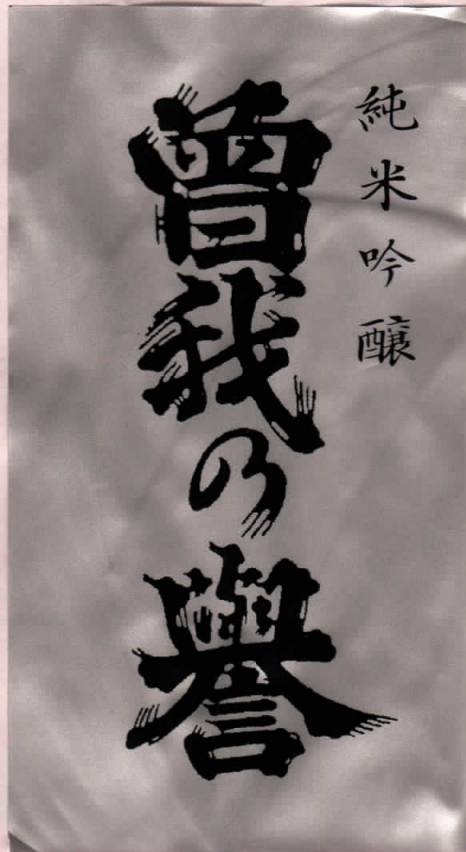 純米吟醸
曽我の譽